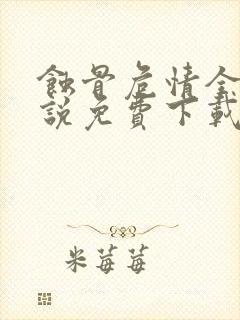 蝕骨危情全
說免費下載
米莓莓